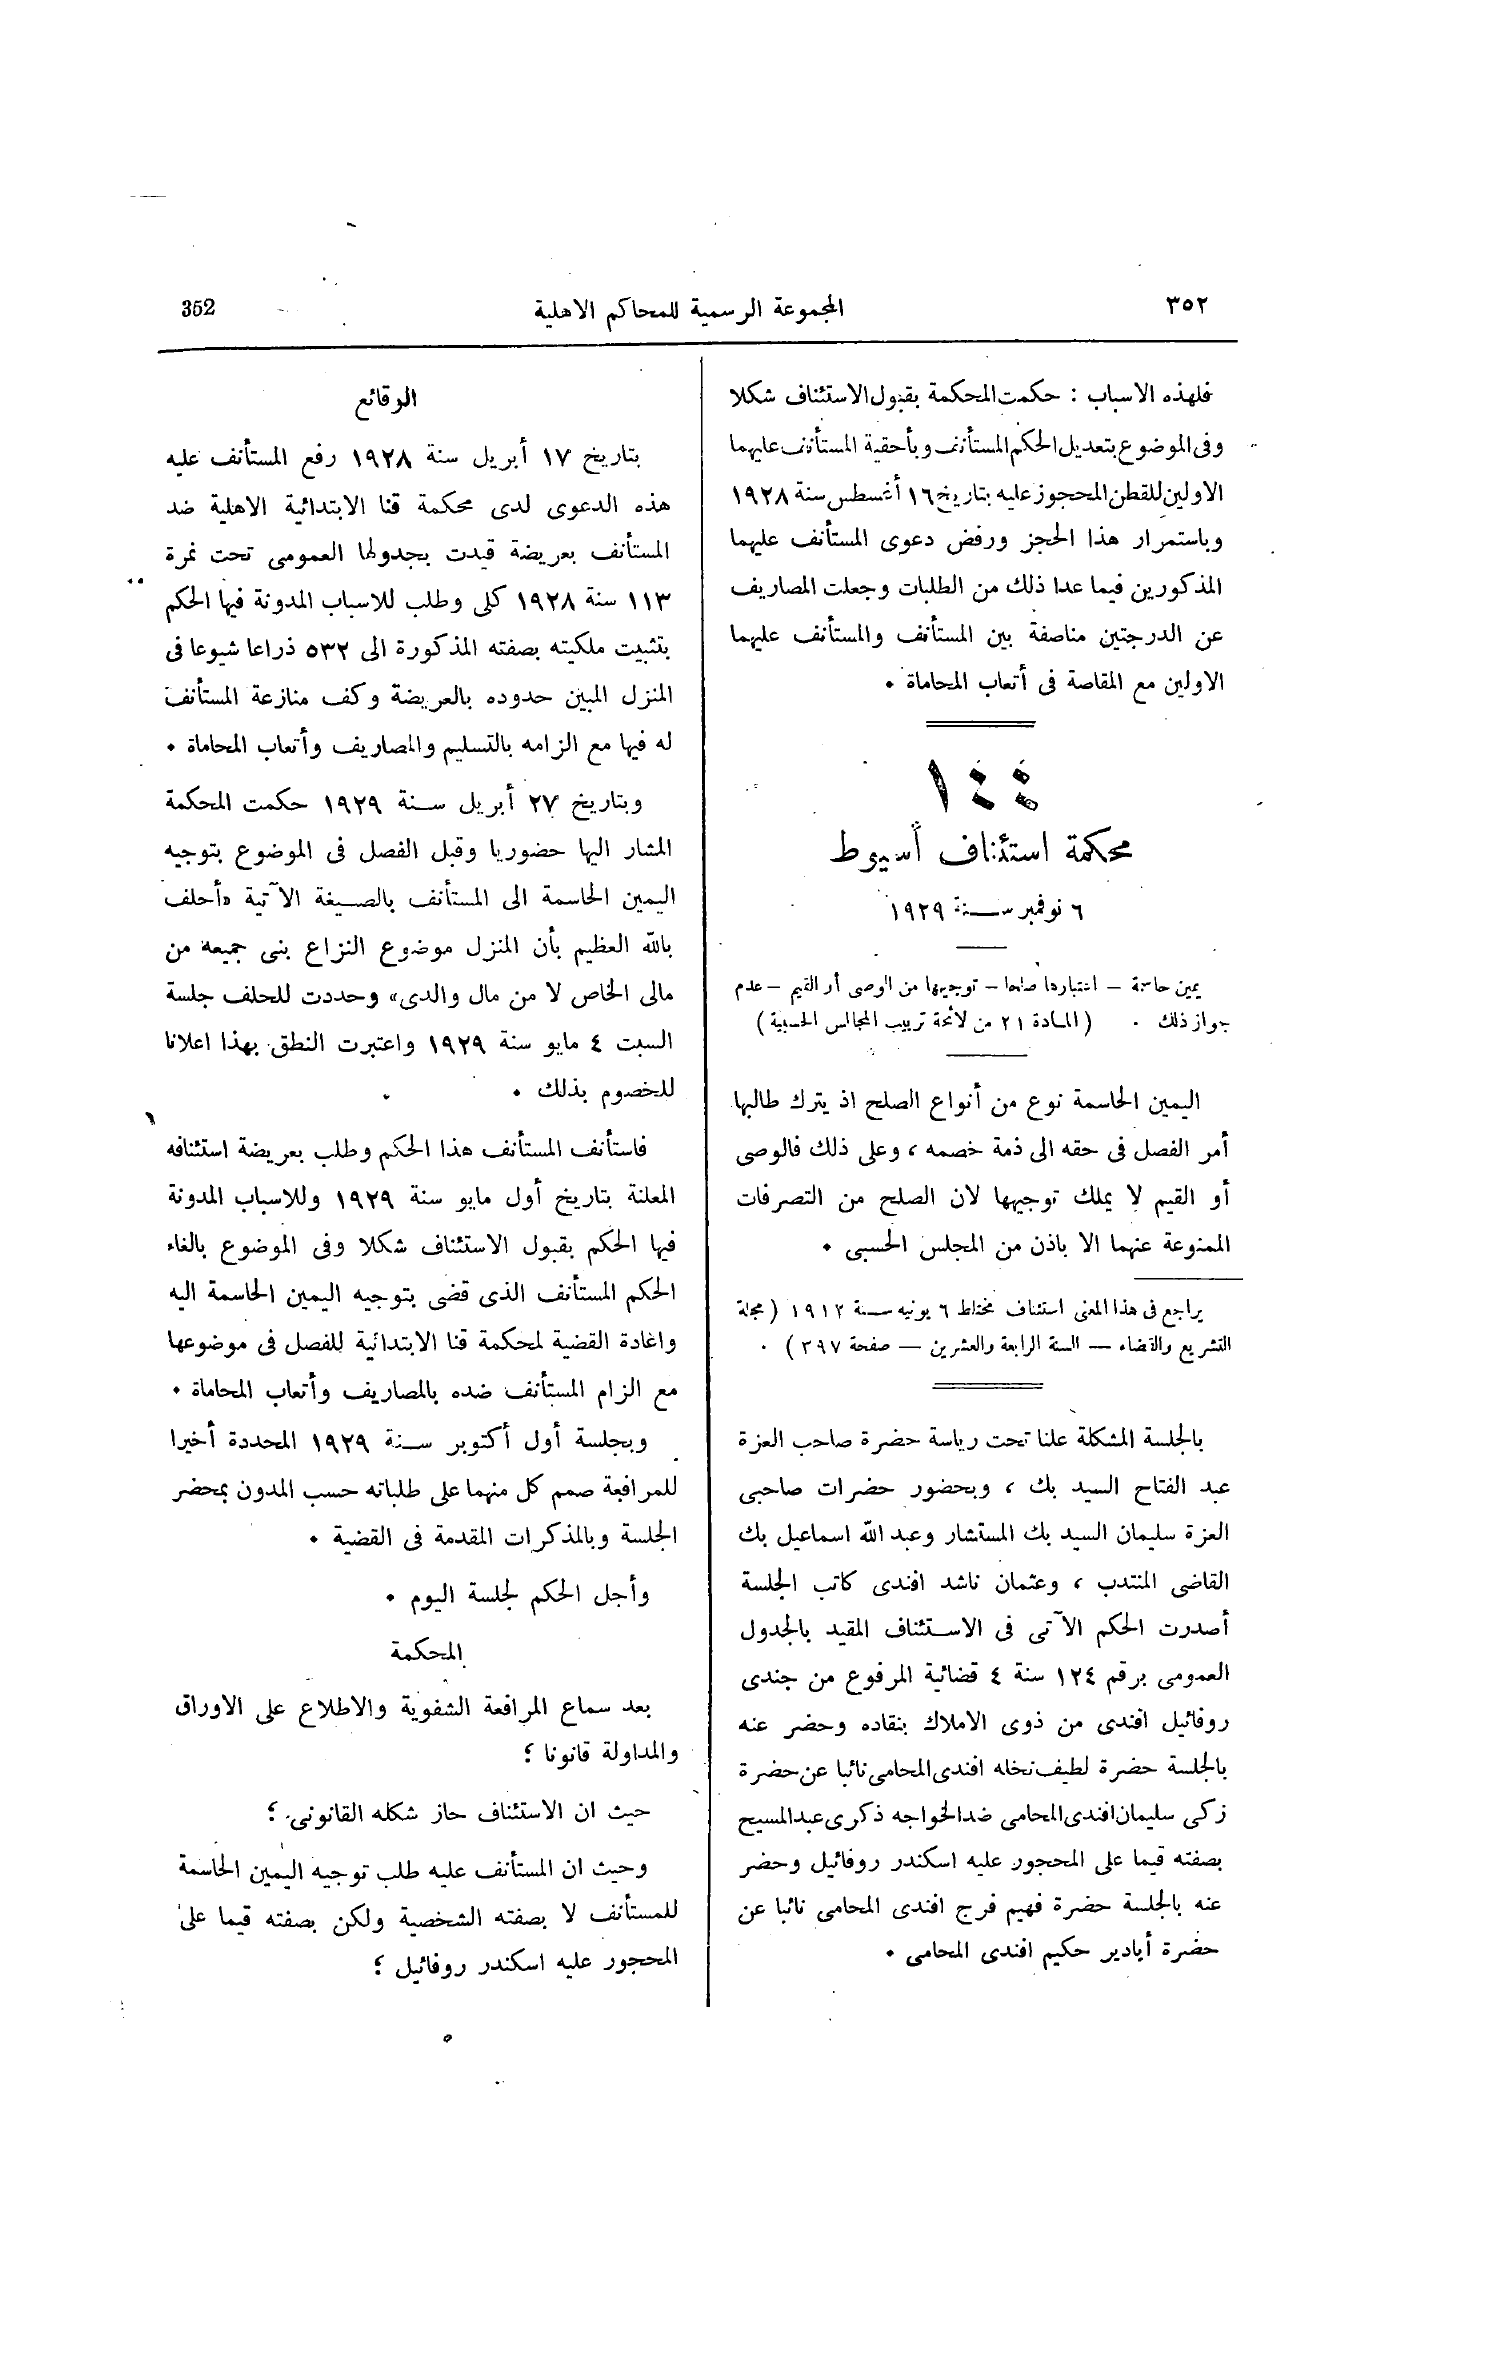 ٣٥٢
المجموعة الرسمية للمحاكم الاهلية
352
فلهذه الاسباب : حكمت المحكمة بقبول الاستئناف شكلا
وفى الموضوع بتعديل الحكم المستأنف وبأحقية المستأنف عليهما
الاولين للقطن المحجوز عليه بتاريخ ١٦ أغسطس سنة ١٩٢٨
وباستمرار هذا الحجز ورفض دعوى المستأنف عليهما
المذكورين فيما عدا ذلك من الطلبات وجعلت المصاريف
عن الدرجتين مناصفة بين المستأنف والمستأنف عليهما
الاولين مع المقاصة فى أتعاب المحاماة .
١٤٤
محكمة استئناف أسيوط
٦ نوفمبر سنة ١٩٢٩
يمين حاسمة — اعتبارها صلحا — توجيهها من الوصى أو القيم — عدم
جواز ذلك . (المادة ٢١ من لائحة ترتيب المجالس الحسبية)
اليمين الحاسمة نوع من أنواع الصلح اذ يترك طالبها
أمر الفصل فى حقه الى ذمة خصمه ، وعلى ذلك فالوصى
أو القيم لا يملك توجيهها لان الصلح من التصرفات
الممنوعة عنهما الا باذن من المجلس الحسبى .
يراجع فى هذا المعنى استئناف مختلط ٦ يونيه سنة ١٩١٢ (مجلة
التشريع والقضاء — السنة الرابعة والعشرين — صفحة ٣٩٧) .
بالجلسة المشكلة علنا تحت رياسة حضرة صاحب العزة
عبد الفتاح السيد بك ، وبحضور حضرات صاحبى
العزة سليمان السيد بك المستشار وعبد الله اسماعيل بك
القاضى المنتدب ، وعثمان ناشد افندى كاتب الجلسة
أصدرت الحكم الآتى فى الاستئناف المقيد بالجدول
العمومى برقم ١٢٤ سنة ٤ قضائية المرفوع من جندى
روفائيل افندى من ذوى الاملاك بنقاده وحضر عنه
بالجلسة حضرة لطيف نخله افندى المحامى نائبا عن حضرة
زكى سليمان افندى المحامى ضد الخواجه ذكرى عبد المسيح
بصفته قيما على المحجور عليه اسكندر روفائيل وحضر
عنه بالجلسة حضرة فهيم فرج افندى المحامى نائبا عن
حضرة أبادير حكيم افندى المحامى .
الوقائع
بتاريخ ١٧ أبريل سنة ١٩٢٨ رفع المستأنف عليه
هذه الدعوى لدى محكمة قنا الابتدائية الاهلية ضد
المستأنف بعريضة قيدت بجدولها العمومى تحت نمرة
١١٣ سنة ١٩٢٨ كلى وطلب للاسباب المدونة فيها الحكم
بتثبيت ملكيته بصفته المذكورة الى ٥٣٢ ذراعا شيوعا فى
المنزل المبين حدوده بالعريضة وكف منازعة المستأنف
له فيها مع الزامه بالتسليم والمصاريف وأتعاب المحاماة .
وبتاريخ ٢٧ أبريل سنة ١٩٢٩ حكمت المحكمة
المشار اليها حضوريا وقبل الفصل فى الموضوع بتوجيه
اليمين الحاسمة الى المستأنف بالصيغة الآتية «أحلف
بالله العظيم بأن المنزل موضوع النزاع بنى جميعه من
مالى الخاص لا من مال والدى» وحددت للحلف جلسة
السبت ٤ مايو سنة ١٩٢٩ واعتبرت النطق بهذا اعلانا
للخصوم بذلك .
فاستأنف المستأنف هذا الحكم وطلب بعريضة استئنافه
المعلنة بتاريخ أول مايو سنة ١٩٢٩ وللاسباب المدونة
فيها الحكم بقبول الاستئناف شكلا وفى الموضوع بالغاء
الحكم المستأنف الذى قضى بتوجيه اليمين الحاسمة اليه
واعادة القضية لمحكمة قنا الابتدائية للفصل فى موضوعها
مع الزام المستأنف ضده بالمصاريف وأتعاب المحاماة .
وبجلسة أول أكتوبر سنة ١٩٢٩ المحددة أخيرا
للمرافعة صمم كل منهما على طلباته حسب المدون بمحضر
الجلسة وبالمذكرات المقدمة فى القضية .
وأجل الحكم لجلسة اليوم .
المحكمة
بعد سماع المرافعة الشفوية والاطلاع على الاوراق
والمداولة قانونا ؛
حيث ان الاستئناف حاز شكله القانونى ؛
وحيث ان المستأنف عليه طلب توجيه اليمين الحاسمة
للمستأنف لا بصفته الشخصية ولكن بصفته قيما على
المحجور عليه اسكندر روفائيل ؛